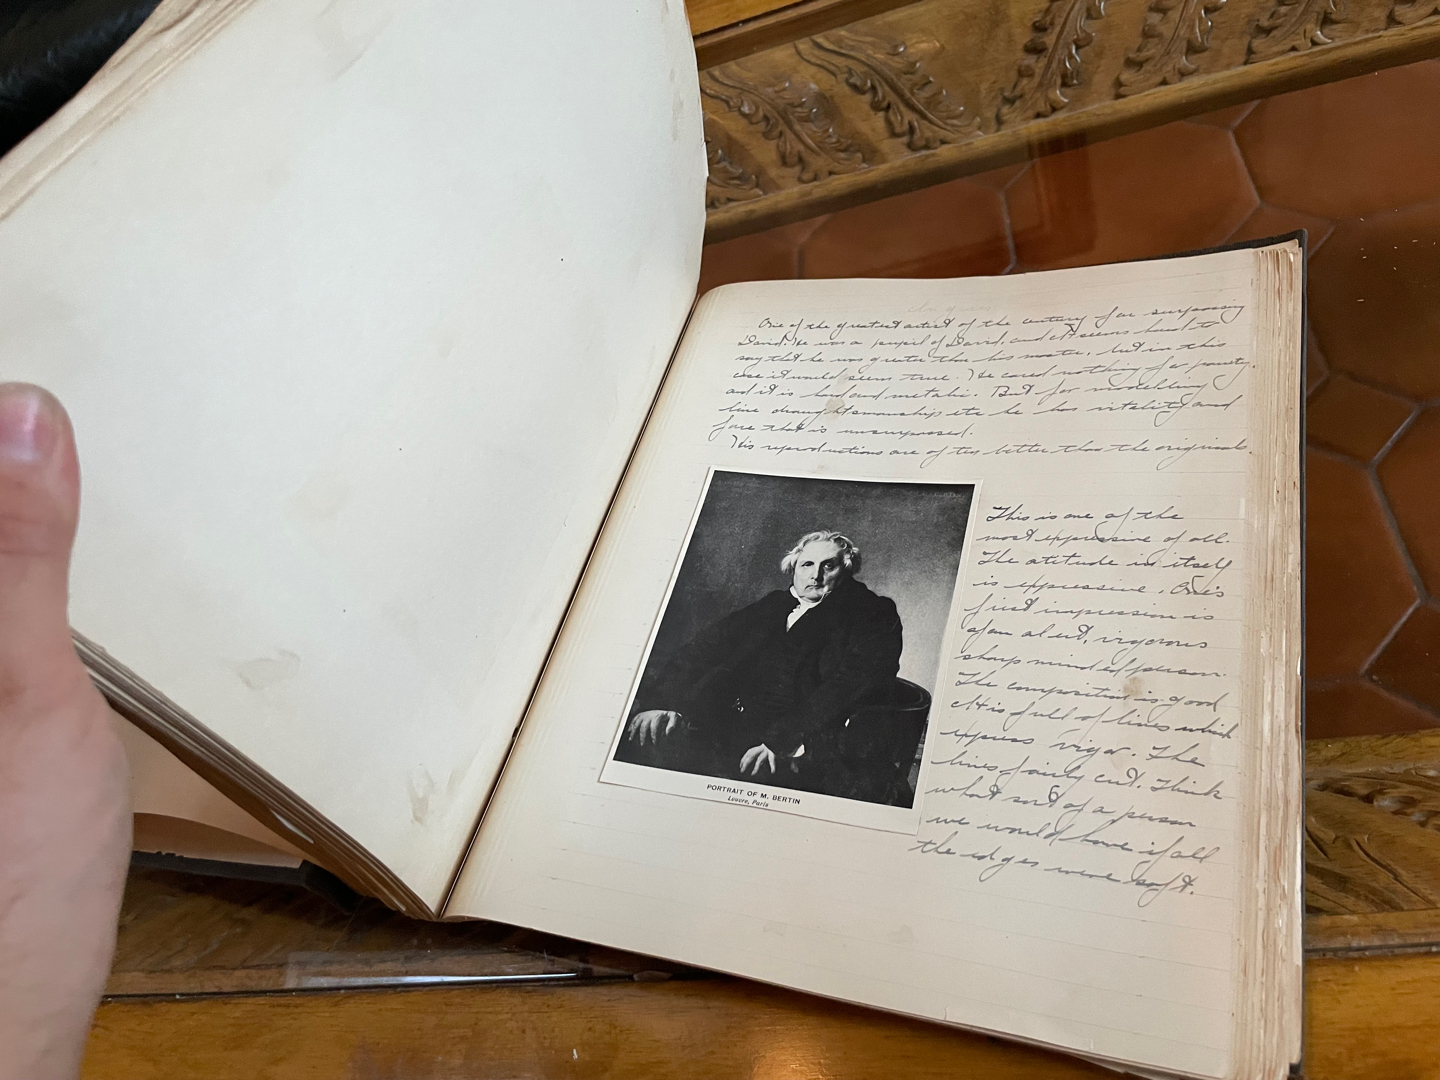 One of the greatest artist of the century far surpassing
David. He was a pupil of David, and it seems hard to
say that he was greater than his master, but in this
case it would seem true. He cared nothing for
and it is hard and metalic. But for modelling
line draughtsmanship etc he has vitality and
force that is unsurpassed.
His reproductions are often better than the originals.
This is one of the
most expressive of all.
The atitude in itself
is expressive. One's
first impression is
of an alert, vigorous
sharp minded person.
The composition is good
It is full of lines which
express vigor. The
lines fairly cut. Think
what sort of a person
we would have if all
the edges were soft.
PORTRAIT OF M. BERTIN
Louvre, Paris